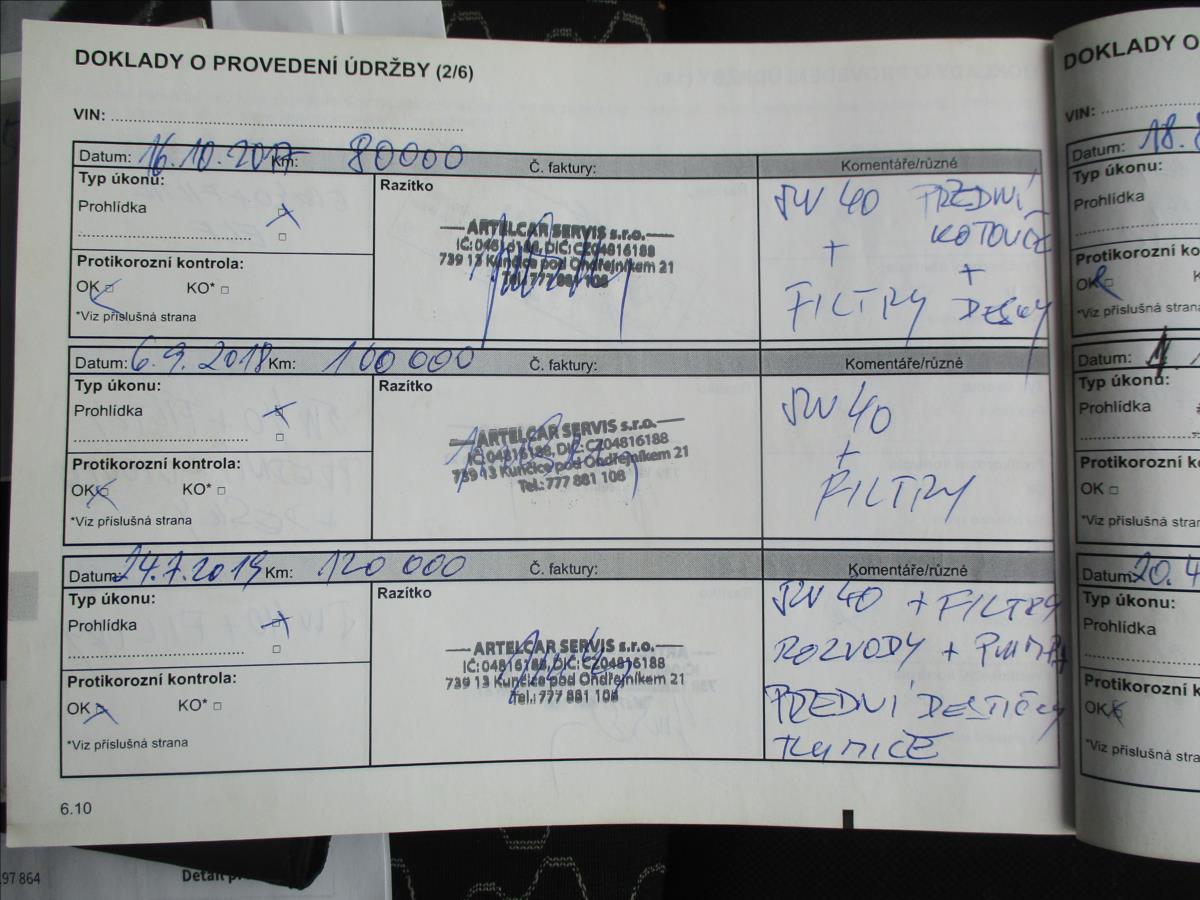 DOKLADY O PROVEDENÍ ÚDRŽBY (2/6)
VIN:
Datum: 16.10.2017 Km: 80000 Č. faktury: Komentáře/různé
Typ úkonu:
Prohlídka
Protikorozní kontrola:
OK □ KO* □
*Viz příslušná strana
Razítko
ARTELCAR SERVIS s.r.o.
IČ: 04816188, DIČ: CZ04816188
739 13 Kunčice pod Ondřejníkem 21
Tel.: 777 881 108
5W 40 PŘEDNÍ
+ KOTOUČE
FILTRY + DESKY
Datum: 6.9.2018 Km: 100 000 Č. faktury: Komentáře/různé
Typ úkonu:
Prohlídka
Protikorozní kontrola:
OK □ KO* □
*Viz příslušná strana
Razítko
ARTELCAR SERVIS s.r.o.
IČ: 04816188, DIČ: CZ04816188
739 13 Kunčice pod Ondřejníkem 21
Tel.: 777 881 108
5W 40
+
FILTRY
Datum: 24.7.2019 Km: 120 000 Č. faktury: Komentáře/různé
Typ úkonu:
Prohlídka
Protikorozní kontrola:
OK □ KO* □
*Viz příslušná strana
Razítko
ARTELCAR SERVIS s.r.o.
IČ: 04816188, DIČ: CZ04816188
739 13 Kunčice pod Ondřejníkem 21
Tel.: 777 881 108
5W 40 + FILTRY
ROZVODY + PUMPA
PŘEDNÍ DESTIČKY
TLUMIČE
6.10
DOKLADY O
VIN:
Datum: 18.
Typ úkonu:
Prohlídka
Protikorozní
OK □
*Viz příslušná
Datum:
Typ úkonu:
Prohlídka
Protikorozní
OK □
*Viz příslušná
Datum: 20.4
Typ úkonu:
Prohlídka
Protikorozní
OK
*Viz příslušná
97 864
Detail